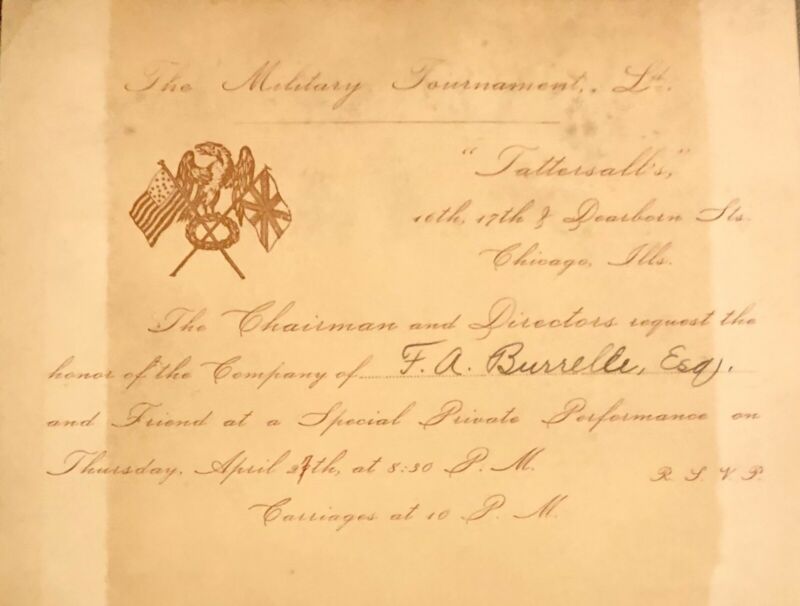 The Military Tournament, Ld.
"Tattersall's,"
16th, 17th & Dearborn Sts.
Chicago, Ills.
The Chairman and Directors request the
honor of the Company of F. A. Burrelle, Esq.
and Friend at a Special Private Performance on
Thursday, April 27th, at 8:30 P. M.
R. S. V. P.
Carriages at 10 P. M.